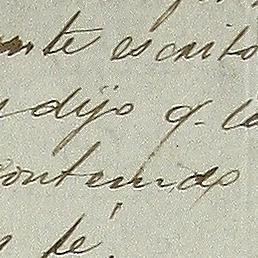 nte escrito
dijo q. la
contenido
fe